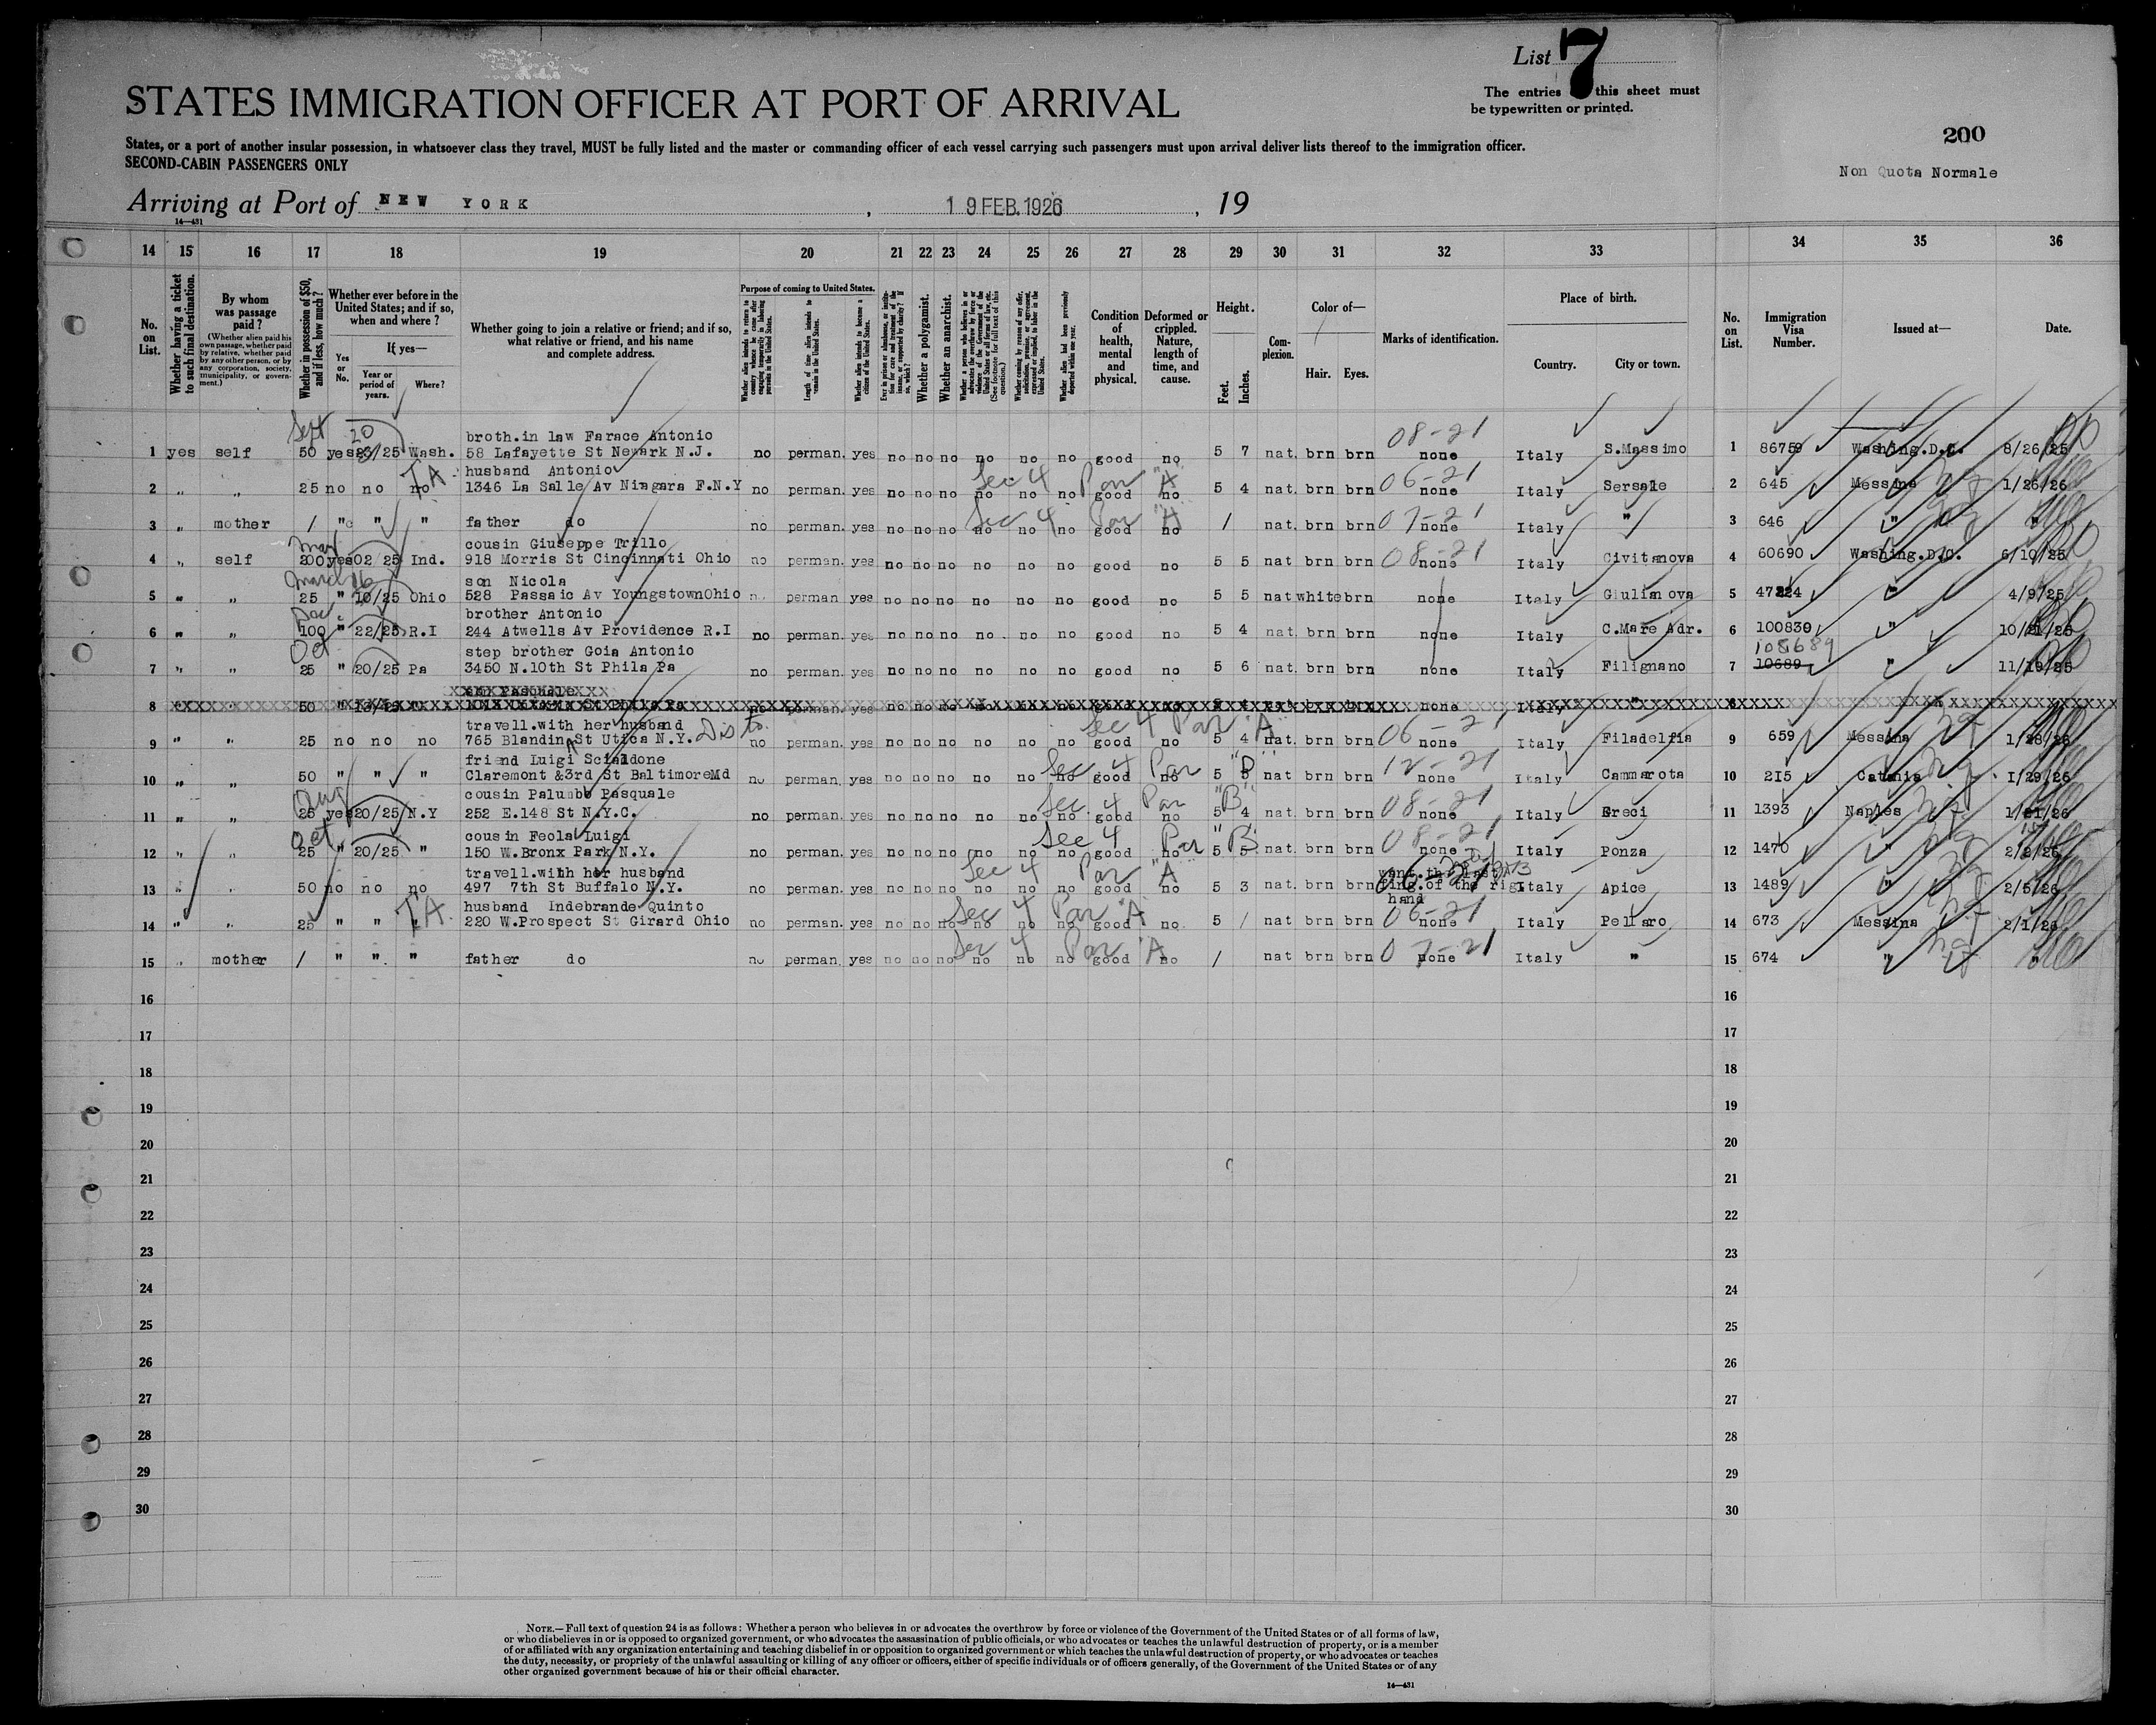 List 7
The entries this sheet must
be typewritten or printed.
STATES IMMIGRATION OFFICER AT PORT OF ARRIVAL
200
States, or a port of another insular possession, in whatsoever class they travel, MUST be fully listed and the master or commanding officer of each vessel carrying such passengers must upon arrival deliver lists thereof to the immigration officer.
SECOND-CABIN PASSENGERS ONLY
Non Quota Normale
Arriving at Port of NEW YORK , 19 FEB. 1926 , 19
14—431
14 15 16 17 18 19 20 21 22 23 24 25 26 27 28 29 30 31 32 33 34 35 36
No. on List.
Whether having a ticket to such final destination.
By whom was passage paid?
(Whether alien paid his own passage, whether paid by relative, whether paid by any other person, or by any corporation, society, municipality, or government.)
Whether in possession of $50, and if less, how much?
Whether ever before in the United States; and if so, when and where?
Yes or No.
If yes—
Year or period of years.
Where?
Whether going to join a relative or friend; and if so, what relative or friend, and his name and complete address.
Purpose of coming to United States.
Length of time alien intends to remain in the United States.
Whether alien intends to become a citizen of the United States.
Whether a polygamist.
Whether an anarchist.
Condition of health, mental and physical.
Deformed or crippled. Nature, length of time, and cause.
Height.
Feet.
Inches.
Complexion.
Color of—
Hair. Eyes.
Marks of identification.
Place of birth.
Country. City or town.
No. on List.
Immigration Visa Number.
Issued at—
Date.
Sept 20 broth.in law Farace Antonio 08-21
1 yes self 50 yes /25 Wash. 58 Lafayette St Newark N.J. no perman. yes no no no no no no good no 5 7 nat. brn brn none Italy S.Massimo 1 86759 Washing.D.C. 8/26/25
T.A. husband Antonio Sec 4 Par "A" 06-21
2 " " 25 no no no 1346 La Salle Av Niagara F.N.Y no perman. yes no no no no no no good no 5 4 nat. brn brn none Italy Sersale 2 645 Messina 1/26/26
Sec 4 Par "A" 07-21
3 " mother / " " " father do no perman. yes no no no no no no good no / nat. brn brn none Italy " 3 646 " "
Mar cousin Giuseppe Trillo 08-21
4 " self 200 yes 02 25 Ind. 918 Morris St Cincinnati Ohio no perman. yes no no no no no no good no 5 5 nat brn brn none Italy Civitanova 4 60690 Washing.D.C. 6/10/25
March son Nicola
5 " " 25 " 10/25 Ohio 528 Passaic Av YoungstownOhio perman yes no no no no no no good no 5 5 nat white brn none Italy Giulianova 5 47224 " 4/9/25
Dec brother Antonio
6 " " 100 " 22/25 R.I 244 Atwells Av Providence R.I no perman. yes no no no no no no good no 5 4 nat. brn brn none Italy C.Mare Adr. 6 100830 " 10/21/25
Oct step brother Goia Antonio 108689
7 " " 25 " 20/25 Pa 3450 N.10th St Phila Pa no perman. yes no no no no no no good no 5 6 nat. brn brn none Italy Filignano 7 10689 " 11/19/25
8 50
travell.with her husband Dist. Sec 4 Par "A" 06-21
9 " " 25 no no no 765 Blandin St Utica N.Y. no perman. yes no no no no no no good no 5 4 nat. brn brn none Italy Filadelfia 9 659 Messina 1/28/26
friend Luigi Scialdone Sec 4 Par "B" 12-21
10 " " 50 " " " Claremont &3rd St BaltimoreMd no perman. yes no no no no no no good no 5 nat brn brn none Italy Cammarota 10 215 Catania 1/29/26
Aug cousin Palumbo Pasquale Sec. 4 Par "B" 08-21
11 " " 25 yes 20/25 N.Y 252 E.148 St N.Y.C. no perman. yes no no no no no no good no 5 4 nat. brn brn none Italy Greci 11 1393 Naples 1/21/26
Oct cousin Feola Luigi Sec 4 Par "B" 08-21
12 " " 25 " 20/25 " 150 W.Bronx Park N.Y. no perman. yes no no no no no no good no 5 5 nat. brn brn none Italy Ponza 12 1470 " 2/2/26
travell.with her husband Sec 4 Par "A" want.the last
13 " " 50 no no no 497 7th St Buffalo N.Y. no perman. yes no no no no no no good no 5 3 nat. brn brn fing.of the rig. Italy Apice 13 1489 " 2/5/26
hand
T.A. husband Indebrande Quinto Sec 4 Par "A" 06-21
14 " " 25 " " " 220 W.Prospect St Girard Ohio no perman. yes no no no no no no good no 5 / nat brn brn none Italy Pellaro 14 673 Messina 2/1/26
Sec 4 Par "A" 07-21
15 " mother / " " " father do no perman. yes no no no no no no good no / nat brn brn none Italy " 15 674 " "
16 16
17 17
18 18
19 19
20 20
21 21
22 22
23 23
24 24
25 25
26 26
27 27
28 28
29 29
30 30
NOTE.—Full text of question 24 is as follows: Whether a person who believes in or advocates the overthrow by force or violence of the Government of the United States or of all forms of law,
or who disbelieves in or is opposed to organized government, or who advocates the assassination of public officials, or who advocates or teaches the unlawful destruction of property, or is a member
of or affiliated with any organization entertaining and teaching disbelief in or opposition to organized government or which teaches the unlawful destruction of property, or who advocates or teaches
the duty, necessity, or propriety of the unlawful assaulting or killing of any officer or officers, either of specific individuals or of officers generally, of the Government of the United States or of any
other organized government because of his or their official character.
14—431